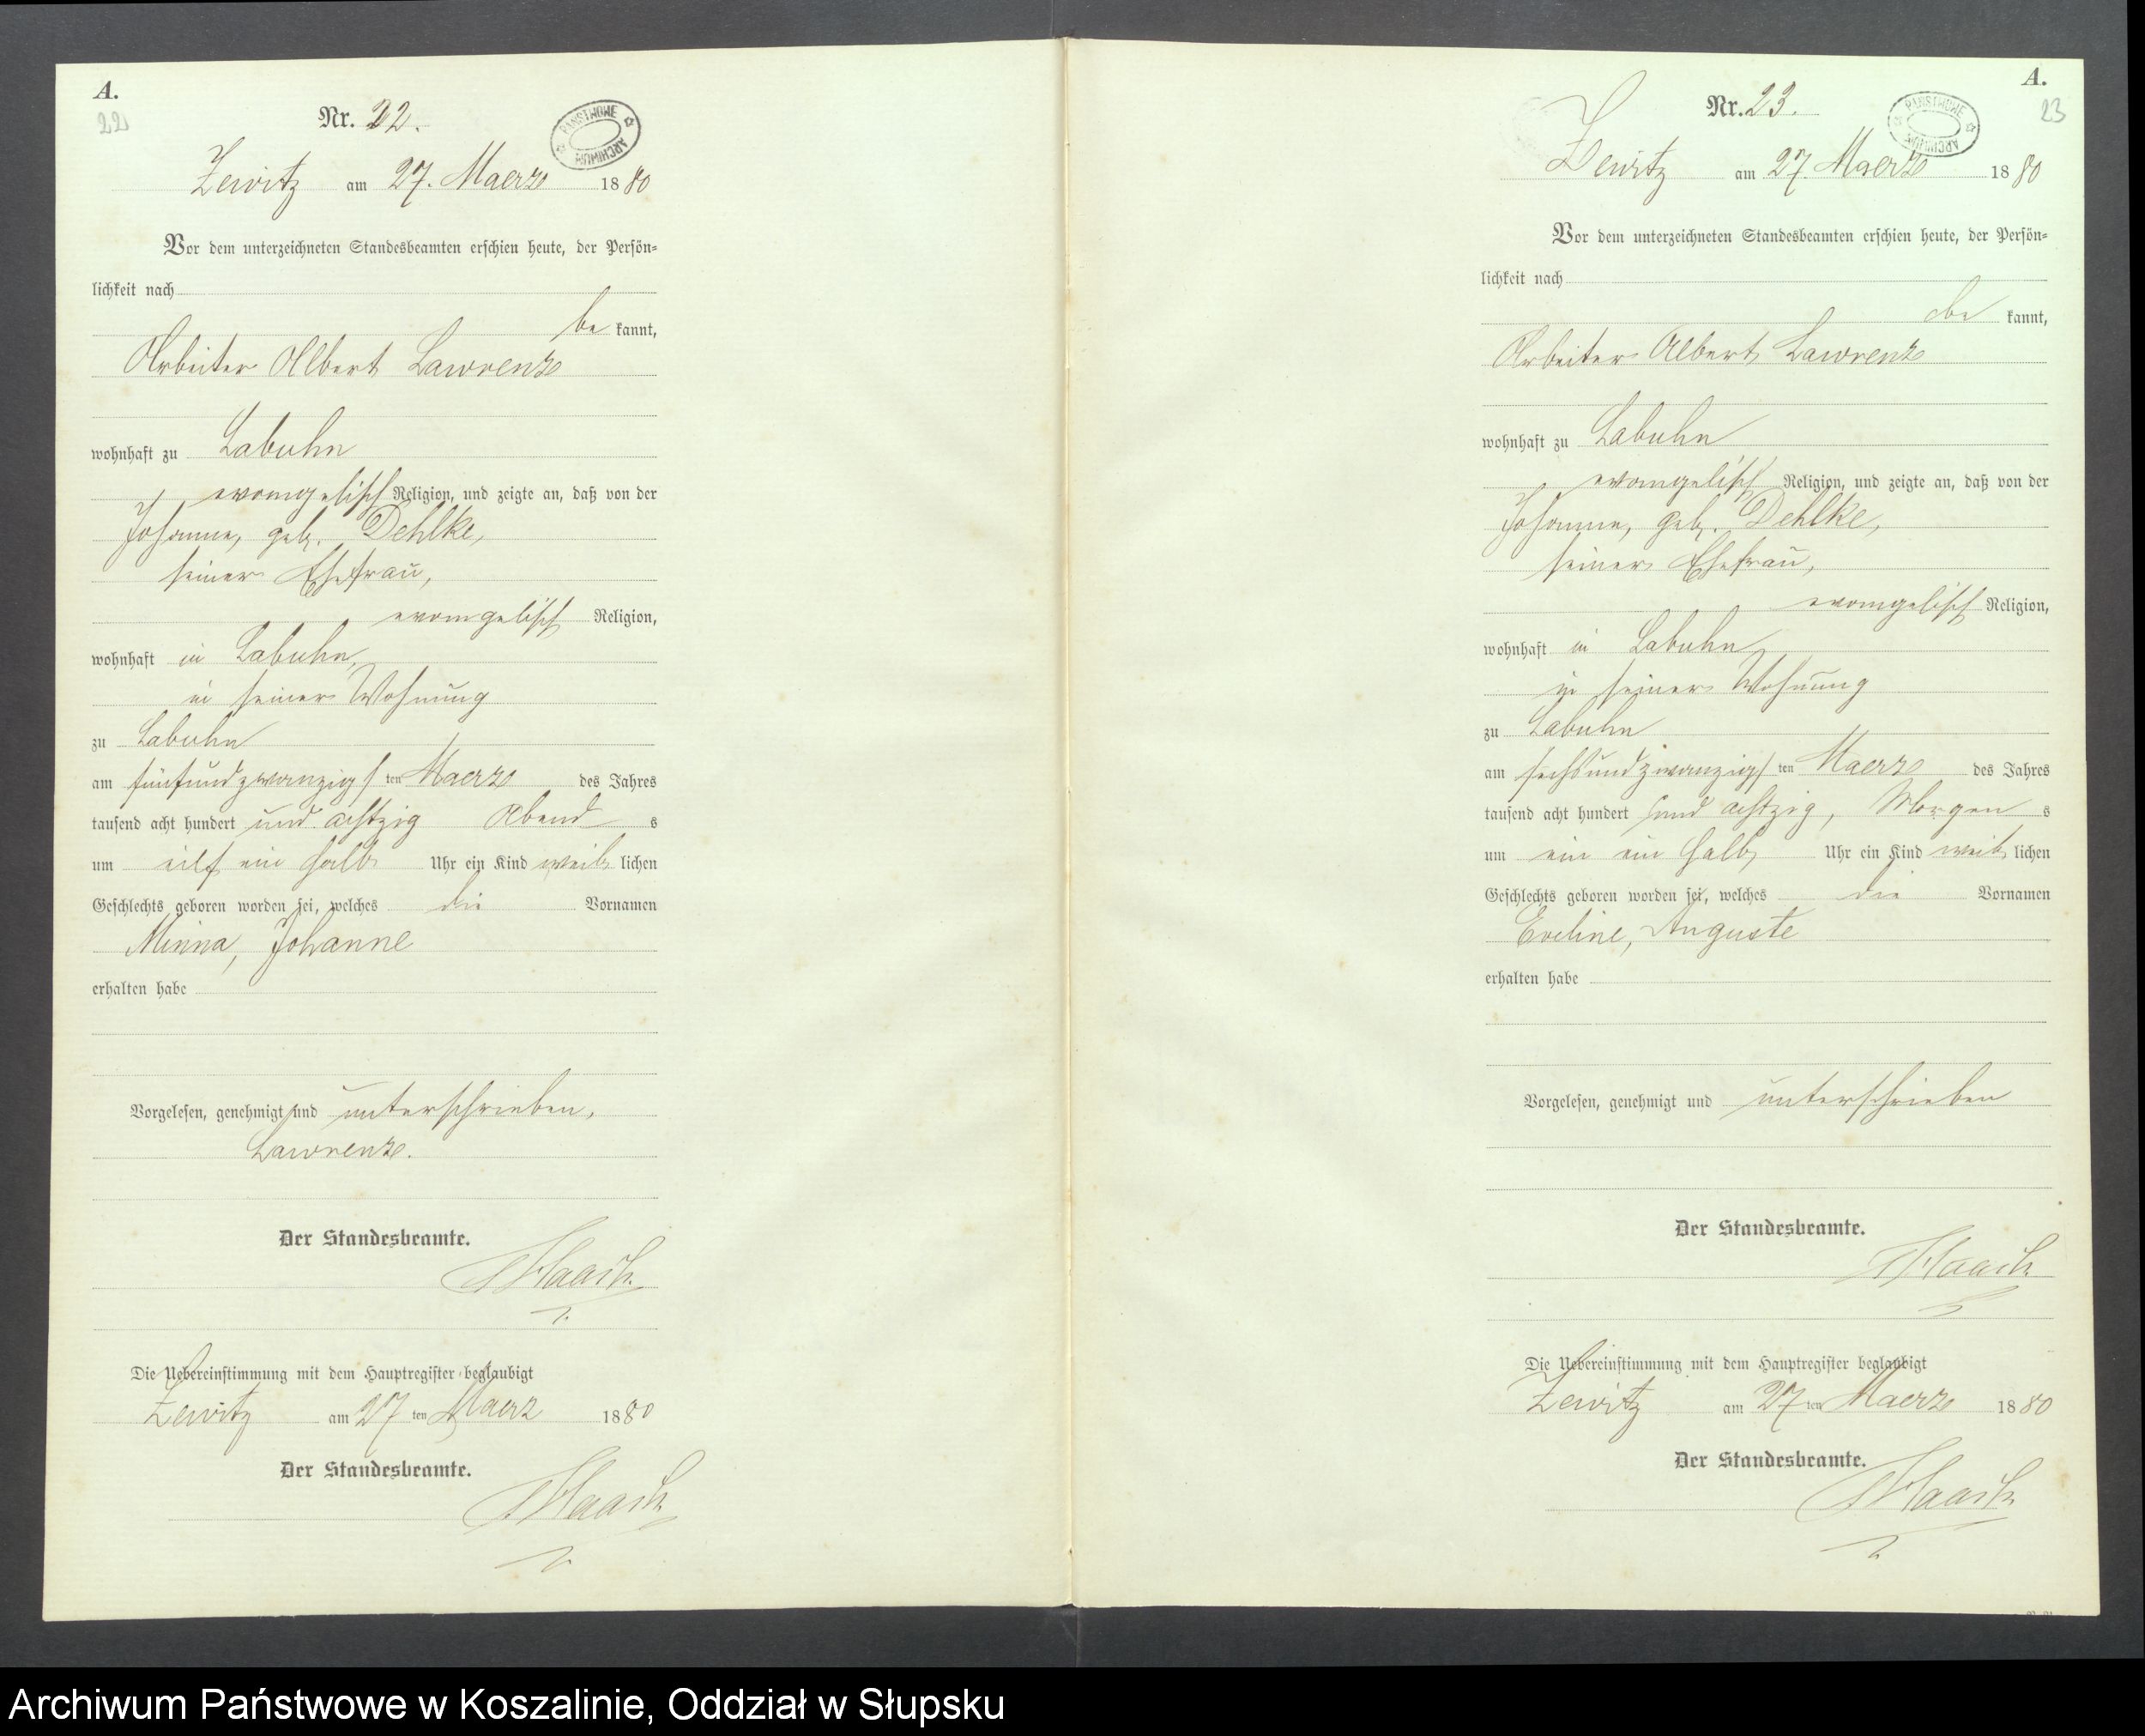 A.
22
Nr. 22.
PAŃSTWOWE ARCHIWUM
Zewitz am 27. Maerz 1880
Vor dem unterzeichneten Standesbeamten erschien heute, der Persön-
lichkeit nach
be kannt,
Arbeiter Albert Lawrenz
wohnhaft zu Labuhn
evangelisch Religion, und zeigte an, daß von der
Johanne, geb. Dehlke,
seiner Ehefrau,
evangelisch Religion,
wohnhaft in Labuhn,
in seiner Wohnung
zu Labuhn
am fünfundzwanzigsten Maerz des Jahres
tausend acht hundert und achtzig Abend s
um eilf ein halb Uhr ein Kind weib lichen
Geschlechts geboren worden sei, welches die Vornamen
Minna, Johanne
erhalten habe
Vorgelesen, genehmigt und unterschrieben,
Lawrenz.
Der Standesbeamte.
Die Uebereinstimmung mit dem Hauptregister beglaubigt
Zewitz am 27 ten Maerz 1880
Der Standesbeamte.
A.
23
Nr. 23.
PAŃSTWOWE ARCHIWUM
Zewitz am 27. Maerz 1880
Vor dem unterzeichneten Standesbeamten erschien heute, der Persön-
lichkeit nach
be kannt,
Arbeiter Albert Lawrenz
wohnhaft zu Labuhn
evangelisch Religion, und zeigte an, daß von der
Johanne, geb. Dehlke,
seiner Ehefrau,
evangelisch Religion,
wohnhaft in Labuhn,
in seiner Wohnung
zu Labuhn
am sechsundzwanzigsten Maerz des Jahres
tausend acht hundert und achtzig, Morgen s
um ein ein halb Uhr ein Kind weib lichen
Geschlechts geboren worden sei, welches die Vornamen
Eveline, Auguste
erhalten habe
Vorgelesen, genehmigt und unterschrieben
Der Standesbeamte.
Die Uebereinstimmung mit dem Hauptregister beglaubigt
Zewitz am 27 ten Maerz 1880
Der Standesbeamte.
Archiwum Państwowe w Koszalinie, Oddział w Słupsku